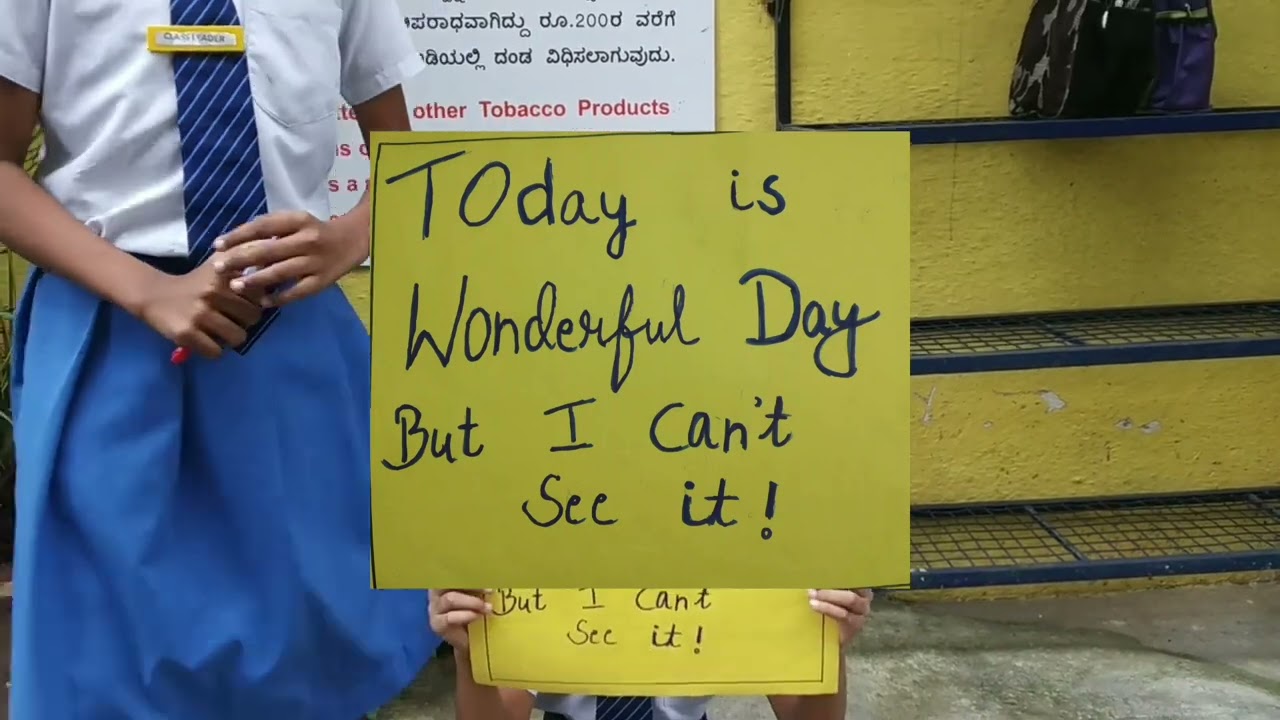 CLASS LEADER
ಅಪರಾಧವಾಗಿದ್ದು ರೂ.200ರ ವರೆಗೆ
ದಂಡ ವಿಧಿಸಲಾಗುವುದು.
other Tobacco Products
is a
TOday is
Wonderful Day
But I Can't
See it!
But I Can't
See it!